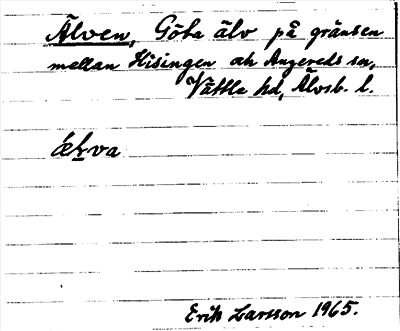 Älven, Göta älv på gränsen
mellan Hisingen och Angereds sn,
Vättle hd, Älvsb. l.
ælva
Erik Larsson 1965.